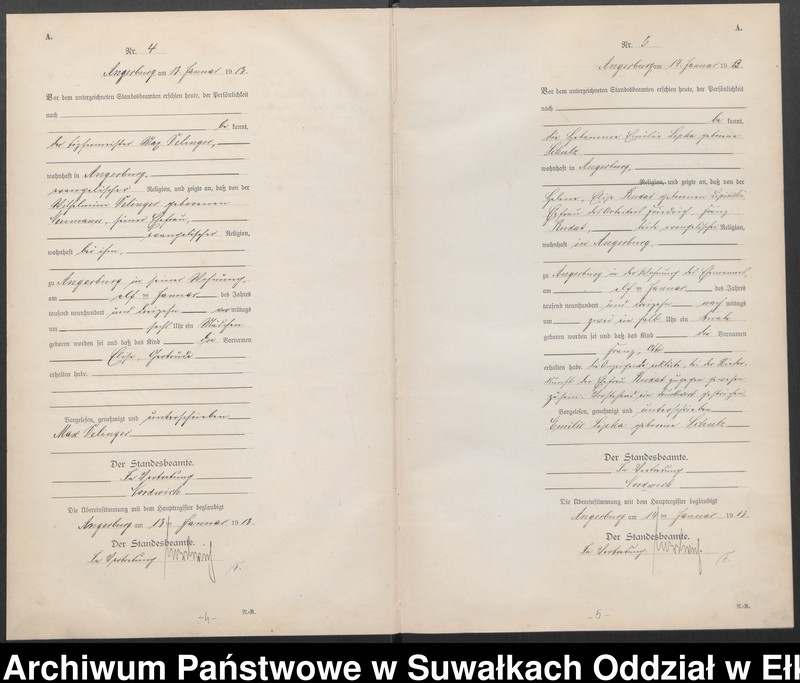 A.
Nr. 4
Angerburg am 13. Januar 1913.
Vor dem unterzeichneten Standesbeamten erschien heute, der Persönlichkeit
nach
be kannt,
der Töpfermeister Max Selinger,
wohnhaft in Angerburg,
evangelischer Religion, und zeigte an, daß von der
Wilhelmine Selinger geborenen
Neumann, seiner Ehefrau,
evangelischer Religion,
wohnhaft bei ihm,
zu Angerburg in seiner Wohnung,
am elften Januar des Jahres
tausend neunhundert und dreizehn vor mittags
um sechs Uhr ein Mädchen
geboren worden sei und daß das Kind die Vornamen
Gertrud
erhalten habe.
Vorgelesen, genehmigt und unterschrieben
Max Selinger
Der Standesbeamte.
In Vertretung
Nordwich
Die Übereinstimmung mit dem Hauptregister beglaubigt
Angerburg am 13ten Januar 1913.
Der Standesbeamte.
In Vertretung
-4-
N.-R.
A.
Nr. 5
Angerburg am 14. Januar 1913
Vor dem unterzeichneten Standesbeamten erschien heute, der Persönlichkeit
nach
be kannt,
die Hebamme Emilie Lipka geborene
Schulz
wohnhaft in Angerburg,
Religion, und zeigte an, daß von der
Helene, Elise Rudat geborenen Lipinski,
Ehefrau des Arbeiters Friedrich, Franz
Rudat, beide evangelischer Religion,
wohnhaft in Angerburg
zu Angerburg in der Wohnung des Ehemannes,
am elften Januar des Jahres
tausend neunhundert und dreizehn nach mittags
um zwei ein halb Uhr ein Knabe
geboren worden sei und daß das Kind die Vornamen
Franz, Otto
erhalten habe. Die Anzeigende erklärte, bei der Nieder-
kunft der Ehefrau Rudat zugegen gewesen
zu sein. Vorstehend ein Druckwort gestrichen.
Vorgelesen, genehmigt und unterschrieben
Emilie Lipka geborene Schulz
Der Standesbeamte.
In Vertretung
Nordwich
Die Übereinstimmung mit dem Hauptregister beglaubigt
Angerburg am 14ten Januar 1913.
Der Standesbeamte.
In Vertretung
-5-
N.-R.
Archiwum Państwowe w Suwałkach Oddział w Ełk